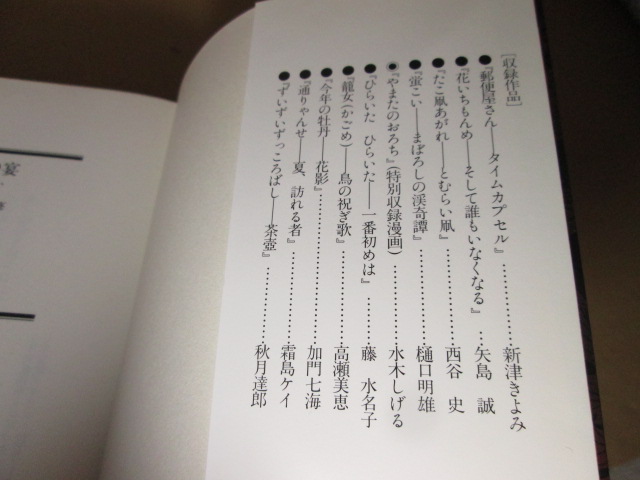 ［収録作品］
●『郵便屋さん――タイムカプセル』…………新津きよみ
●『花いちもんめ――そして誰もいなくなる』…矢島 誠
●『たこ凧あがれ――とむらい凧』…………西谷 史
●『蛍こい――まぼろしの渓奇譚』…………樋口明雄
◉『やまたのおろち』(特別収録漫画)…………水木しげる
●『ひらいた ひらいた――一番初めは』…………藤 水名子
●『籠女(かごめ)――鳥の祝ぎ歌』…………高瀬美恵
●『今年の牡丹――花影』…………加門七海
●『通りゃんせ――夏、訪れる者』…………霜島ケイ
●『ずいずいずっころばし――茶壺』…………秋月達郎
宴